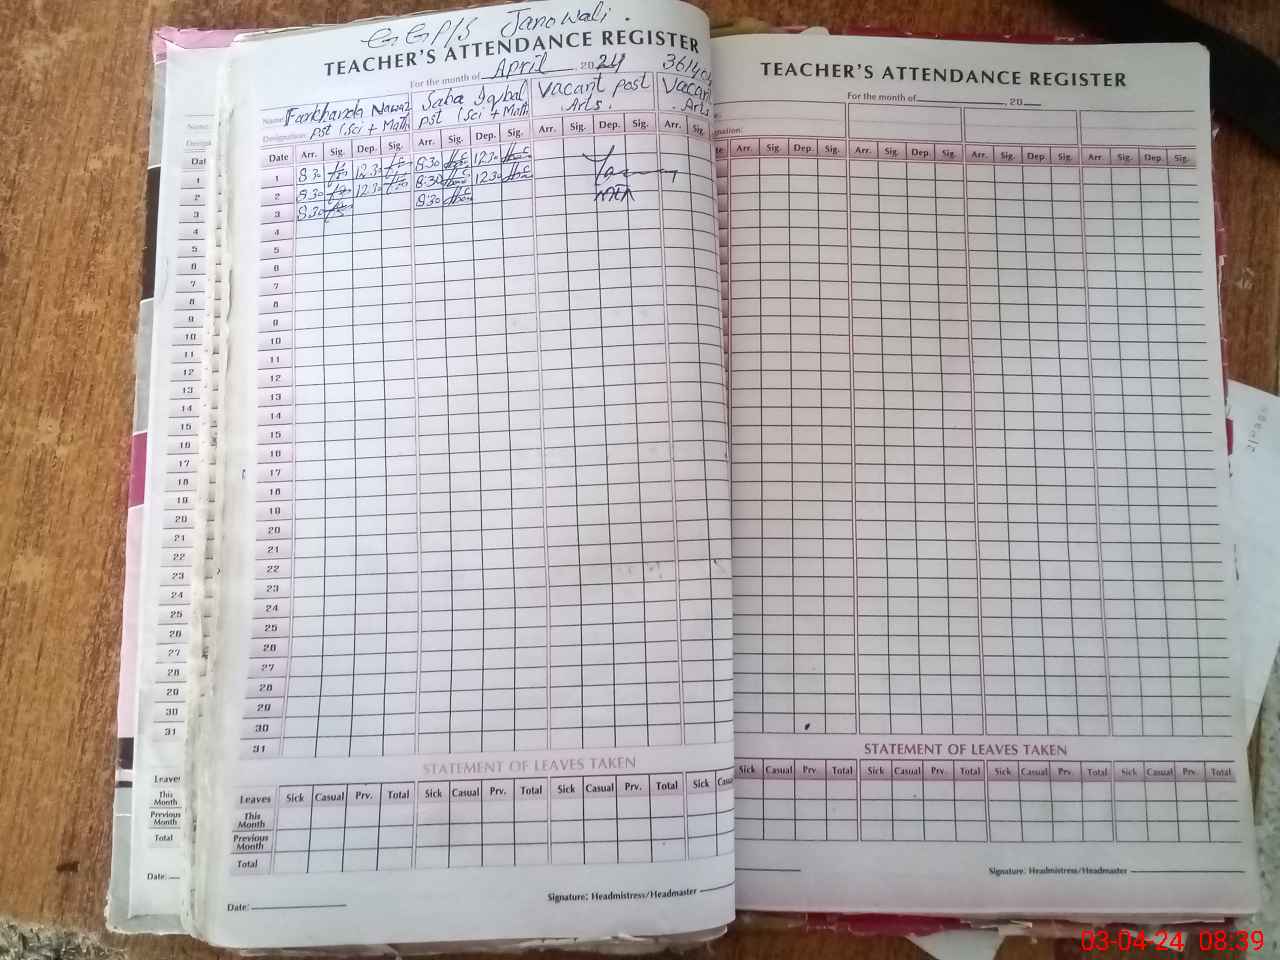 GGP/S Janowali.
TEACHER'S ATTENDANCE REGISTER
For the month of April 2024
Name: Farkhanda Nawaz Saba Iqbal Vacant post Vacant
Designation: pst (Sci + Math pst (Sci + Math Arts. Arts
Date Arr. Sig. Dep. Sig. Arr. Sig. Dep. Sig. Arr. Sig. Dep. Sig. Arr. Sig.
1 8:30 12:30 8:30 12:30
2 8:30 12:30 8:30 12:30
3 8:30 8:30
4
5
6
7
8
9
10
11
12
13
14
15
16
17
18
19
20
21
22
23
24
25
26
27
28
29
30
31
STATEMENT OF LEAVES TAKEN
Leaves Sick Casual Prv. Total Sick Casual Prv. Total Sick Casual Prv. Total Sick
This Month
Previous Month
Total
Signature: Headmistress/Headmaster
Date:
TEACHER'S ATTENDANCE REGISTER
For the month of , 20
Arr. Sig. Dep. Sig. Arr. Sig. Dep. Sig. Arr. Sig. Dep. Sig. Arr. Sig. Dep. Sig.
STATEMENT OF LEAVES TAKEN
Sick Casual Prv. Total Sick Casual Prv. Total Sick Casual Prv. Total Sick Casual Prv. Total
Signature: Headmistress/Headmaster
Name:
1
2
3
4
5
6
7
8
9
10
11
12
13
14
15
16
17
18
19
20
21
22
23
24
25
26
27
28
29
30
31
This Month
Previous Month
Total
Date:
03-04-24 08:39